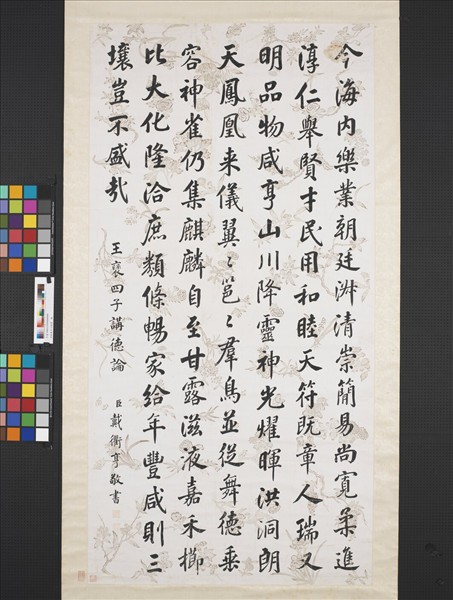 今海内樂業朝廷淋清崇簡易尚寬柔進
淳仁舉賢才民用和睦天符既章人瑞又
明品物咸亨山川降靈神光燿暉洪洞朗
天鳳凰来儀翼〻邕〻羣鳥並從舞德乗
容神雀仍集麒麟自至甘露滋液嘉禾櫛
比大化隆洽庶類條暢家給年豐咸則三
壤豈不盛㢤
王襃四子講德論
臣戴衢亨敬書